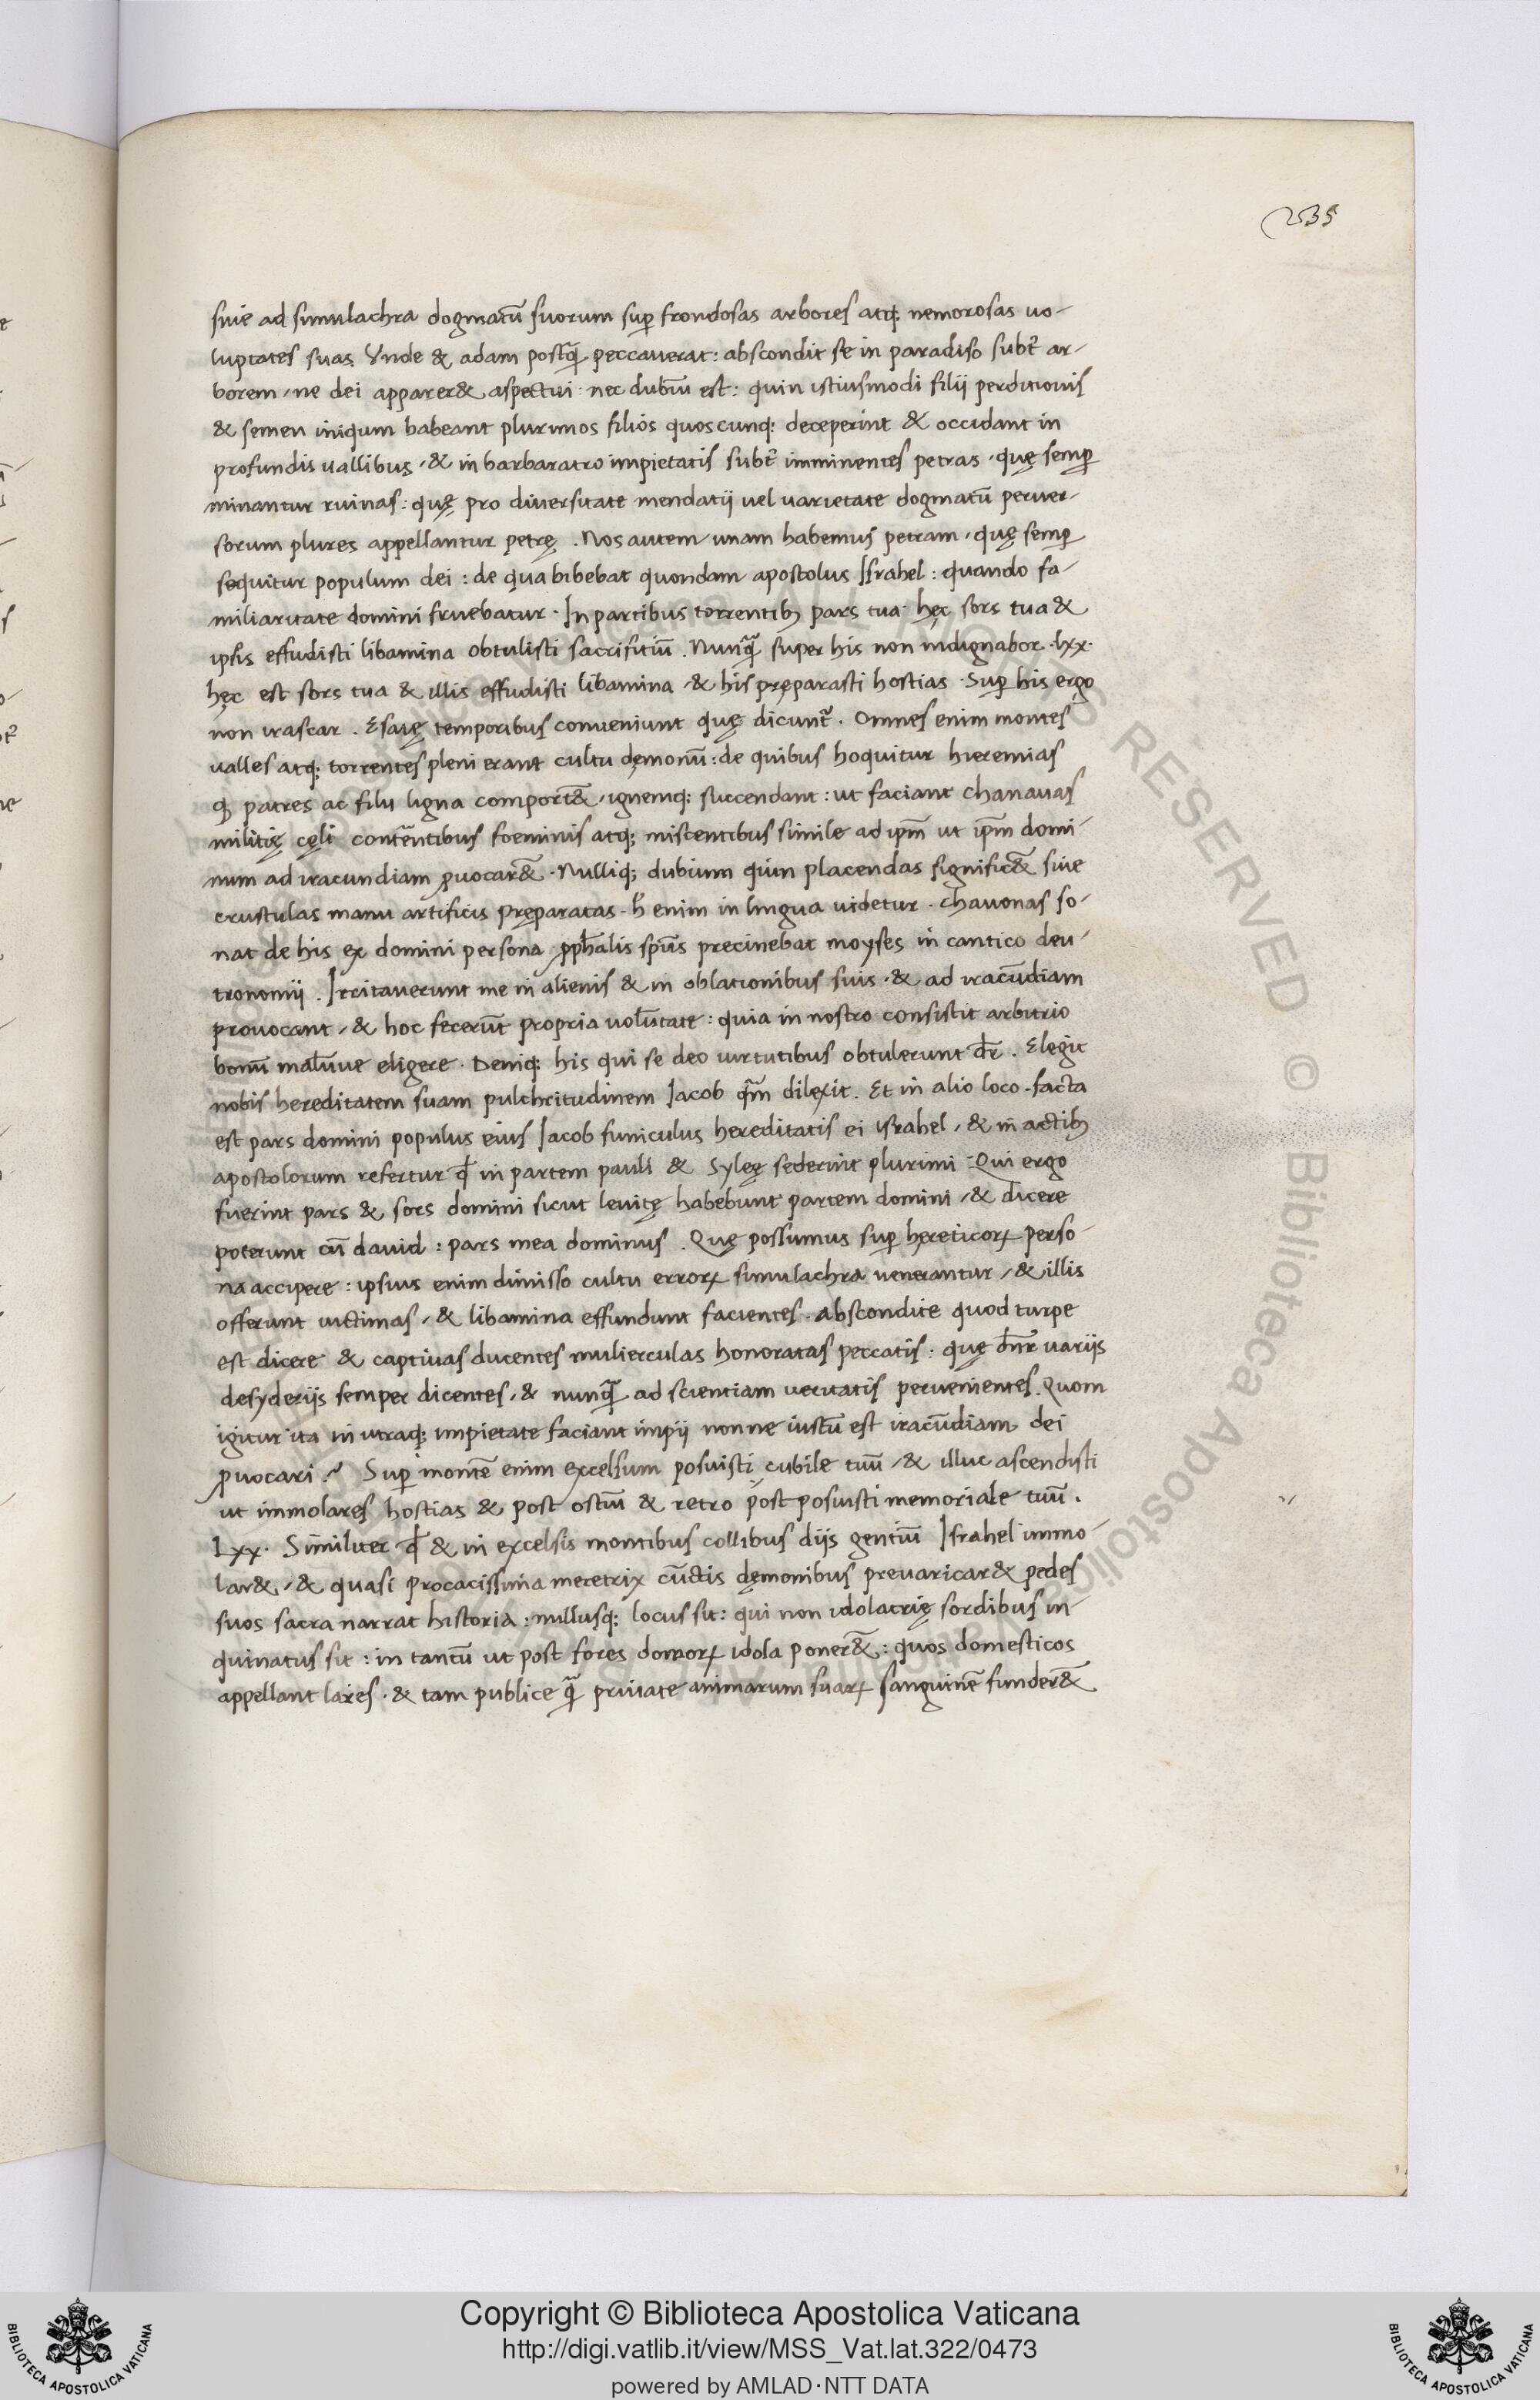 235
siue ad simulachra dogmatū suorum sup̱ frondosas arbores atq; nemorosas uo-
luptates suas. Vnde & adam postq̃ peccauerat: abscondit se in paradiso subt̃ ar-
borem / ne dei apparer& aspectui: nec dubiū est: quin istiusmodi filii perditionis
& semen iniqum habeant plurimos filios quoscunq; deceperint & occidant in
profundis uallibus / & in barbaratro impietatis subt̃ imminentes petras · quę semp̱
minantur ruinas: quę pro diuersitate mendatii uel uarietate dogmatū peruer-
sorum plures appellantur petrę . Nos autem unam habemus petram / quę semp̱
sequitur populum dei: de qua bibebat quondam apostolus Israhel: quando fa-
miliaritate domini fruebatur · In partibus torrentibꝫ pars tua hęc sors tua &
ipsis effudisti libamina obtulisti sacrifitiū . Nunq̃ super his non indignabor · lxx·
hęc est sors tua & illis effudisti libamina / & his pręparasti hostias · Sup̱ his ergo
non irascar . Esaię temporibus conueniunt quę dicunt̃ . Omnes enim montes
ualles atq; torrentes pleni erant cultu dęmonū: de quibus hoquitur hieremias
ꝙ patres ac filii ligna comport&̃ / ignemq; succendant: ut faciant chanauas
militię cęli contēntibus foeminis atq; miscentibus simile ad ip̃m ut ip̃m domi-
num ad iracundiam ꝓuocar&̃ · Nulliq; dubium quin placendas signific&̃ siue
crustulas manu artificis pręparatas · h̄ enim in lingua uidetur · chauonas so-
nat de his ex domini persona ꝓph̄alis spūs precinebat moyses in cantico deu-
tronomii . Irritauerunt me in alienis & in oblationibus suis · & ad iracūdiam
prouocant / & hoc fecerūt propria uolūtate: quia in nostro consistit arbitrio
bonū malūue eligere · Deniq; his qui se deo uirtutibus obtulerunt dr̄ . Elegit
nobis hereditatem suam pulchritudinem Iacob q̃m dilexit. Et in alio loco · facta
est pars domini populus eius Iacob funiculus hereditatis ei israhel / & in actibꝫ
apostolorum refertur ꝙ in partem pauli & Sylęę sederint plurimi · Qui ergo
fuerint pars & sors domini sicut leuitę habebunt partem domini / & dicere
poterunt cū dauid: pars mea dominus . Quę possumus sup̱ hęreticoꝝ perso-
na accipere: ipsius enim dimisso cultu erroꝝ simulachra uenerantur / & illis
offerunt uictimas / & libamina effundunt facientes · abscondite quod turpe
est dicere & captiuas ducentes mulierculas honoratas peccatis: quę dn̄r uariis
desyderiis semper dicentes / & nunq̃ ad scientiam ueritatis peruenientes. Quom
igitur ita in utraq; impietate faciant impii nonne iustū est iracūdiam dei
ꝓuocari? Sup̱ montē enim excelsum posuisti cubile tuū / & illuc ascendisti
ut immolares hostias & post ostiū & retro post posuisti memoriale tuū .
Lxx· Similiter ꝙ & in excelsis montibus collibus diis gentiū Israhel immo-
lar& / & quasi procacissima meretrix cūctis dęmonibus preuaricar& pedes
suos sacra narrat historia: nullusq; locus sit: qui non idolatrię sordibus in-
quinatus sit: in tantū ut post fores domoꝝ idola poner&̃: quos domesticos
appellant lares · & tam publice q̃ priuate animarum suaꝝ sanguinē funder&̃
ALL RIGHTS RESERVED © Biblioteca Apostolica Vaticana
Copyright © Biblioteca Apostolica Vaticana
http://digi.vatlib.it/view/MSS_Vat.lat.322/0473
powered by AMLAD·NTT DATA
BIBLIOTECA APOSTOLICA VATICANA
BIBLIOTECA APOSTOLICA VATICANA